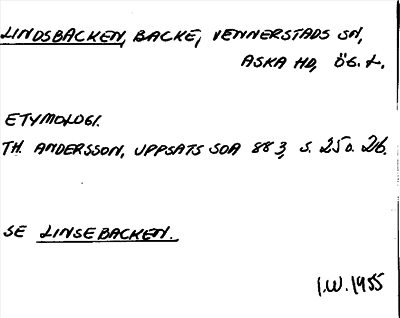 LINDSBACKEN, BACKE, VENNERSTADS SN,
ASKA HD, ÖG. L.
ETYMOLOGI.
TH. ANDERSSON, UPPSATS SOA 883, S. 25 O. 26.
SE LINSEBACKEN.
I.W. 1955